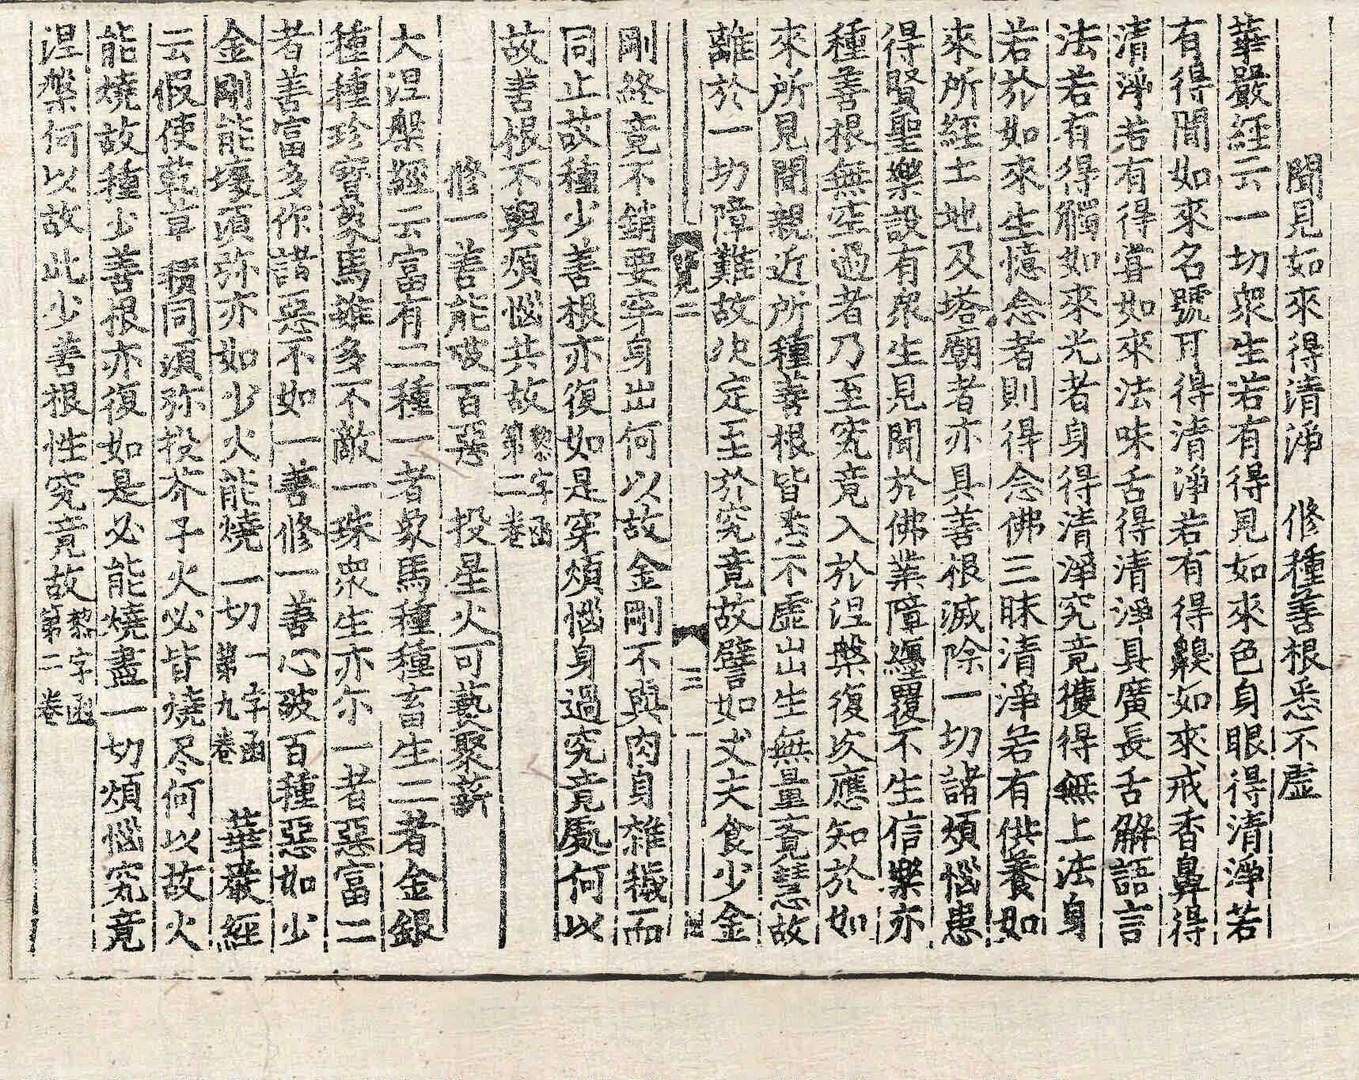 聞見如來得清淨　修種善根悉不虛
華嚴經云一切衆生若有得見如來色身眼得清淨若
有得聞如來名號耳得清淨若有得齅如來戒香鼻得
清淨若有得甞如來法味舌得清淨具廣長舌解語言
法若有得觸如來光者身得清淨究竟獲得無上法身
若於如來生憶念者則得念佛三昧清淨若有供養如
來所經土地及塔廟者亦具善根滅除一切諸煩惱患
得賢聖樂設有衆生見聞於佛業障纒覆不生信樂亦
種善根無空過者乃至究竟入於涅槃復次應知於如
來所見聞親近所種善根皆悉不虛出生無量竟慧故
離於一切障難故決定至於究竟故譬如丈夫食少金
覽二　三
剛終竟不銷要穿身出何以故金剛不與肉身雜穢而
同止故種少善根亦復如是穿煩惱身過究竟處何以
故善根不與煩惱共故黎字函第二卷
修一善能破百惡　投星火可爇聚薪
大涅槃經云富有二種一者象馬種種畜生二者金銀
種種珍寶象馬雖多不敵一珠衆生亦尔一者惡富二
者善富多作諸惡不如一善修一善心破百種惡如少
金剛能壞須弥亦如少火能燒一切一字函第九卷　華嚴經
云假使乾草積同須弥投芥子火必皆燒尽何以故火
能燒故種少善根亦復如是必能燒盡一切煩惱究竟
涅槃何以故此少善根性究竟故黎字函第二卷